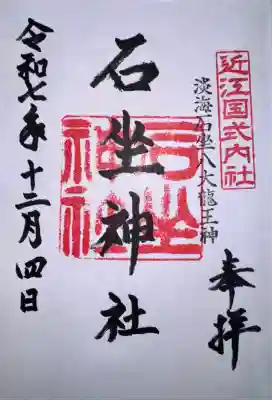 奉拝
近江国式内社
淡海石坐八大龍王神
石坐神社
石坐神社
令和七年十二月四日